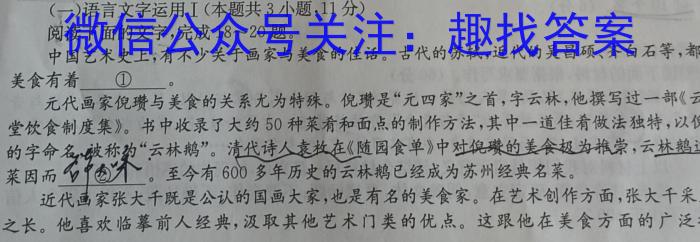 (一)语言文字运用Ⅰ(本题共3小题,11分)
阅读下面的文字,完成18~20题。
微信公众号关注：趣找答案
中国艺术史上,有不少关于画家与美食的佳话。古代的苏轼,近代的吴昌硕、齐白石等,都
美食有着 ① 。
元代画家倪瓒与美食的关系尤为特殊。倪瓒是“元四家”之首,字云林,他撰写过一部《云
堂饮食制度集》。书中收录了大约50种菜肴和面点的制作方法,其中一道佳肴做法独特,以倪
的字命名,被称为“云林鹅”。清代诗人袁枚在《随园食单》中对倪瓒的美食极为推崇,云林鹅这
菜因而 ② 。至今有600多年历史的云林鹅已经成为苏州经典名菜。
近代画家张大千既是公认的国画大家,也是有名的美食家。在艺术创作方面,张大千采
之长。他喜欢临摹前人经典,汲取其他艺术门类的优点。这跟他在美食方面的广泛